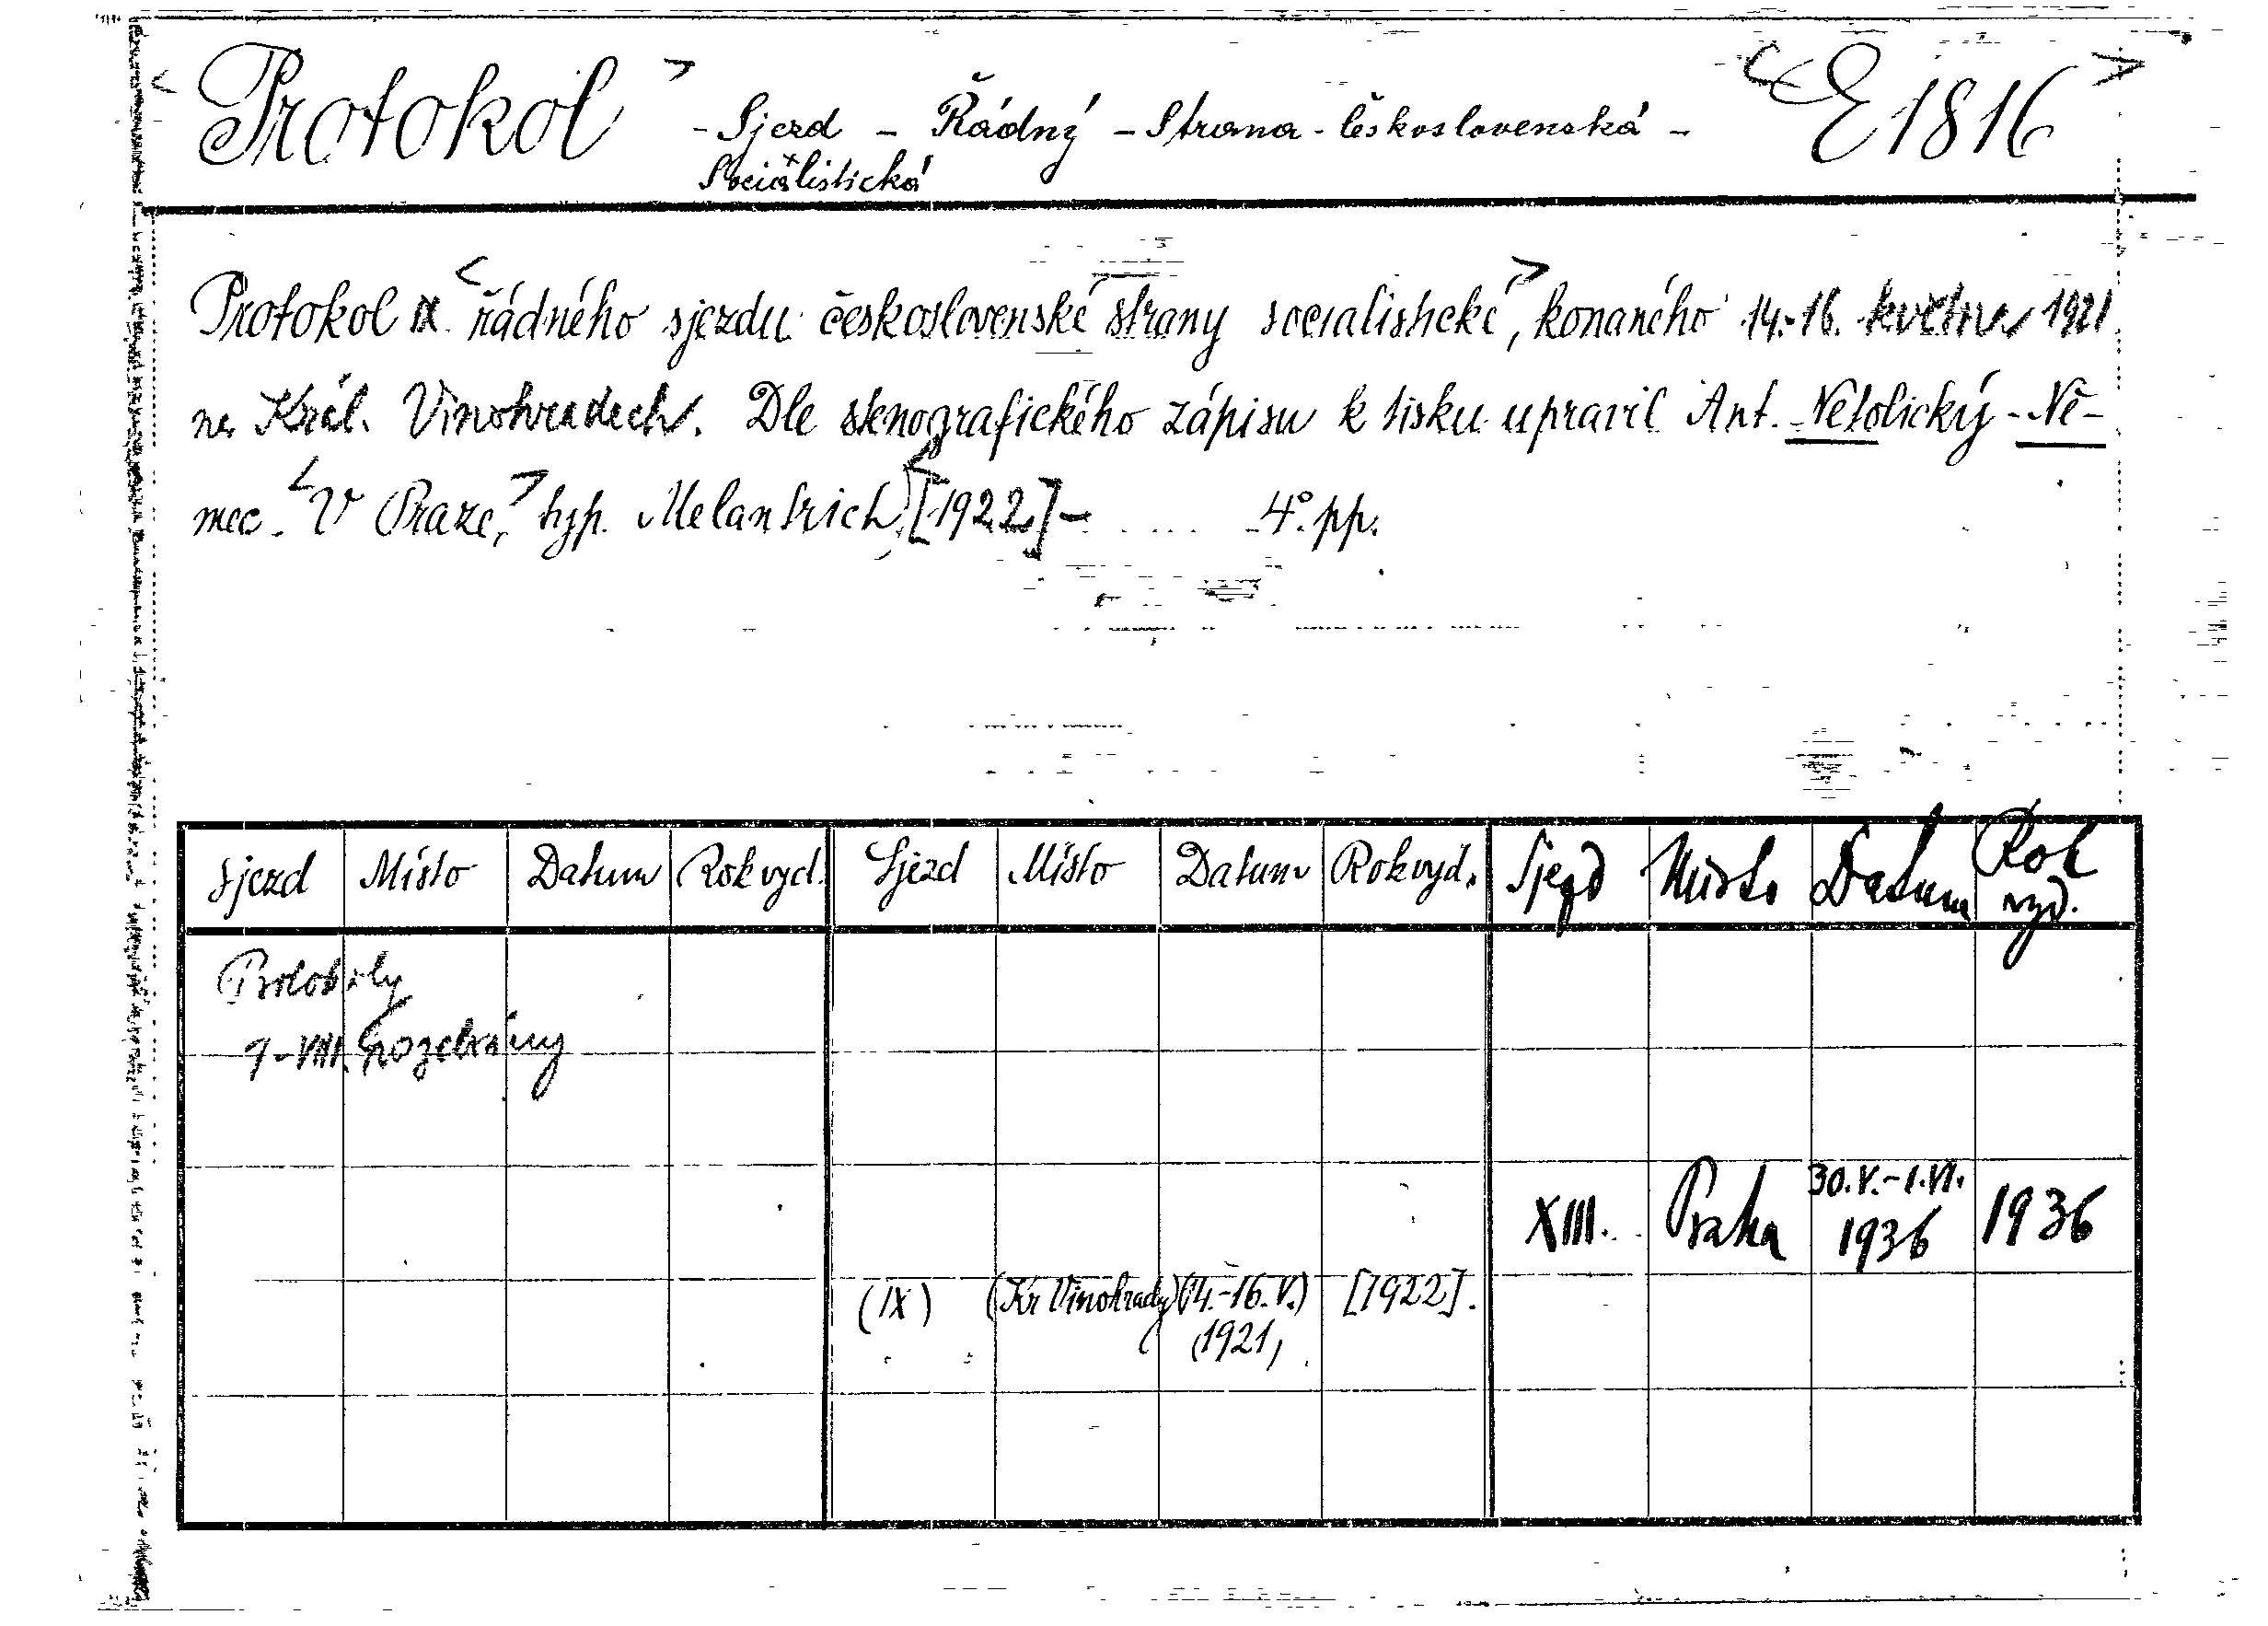 < Protokol > - Sjezd - Řádný - Strana - Československá - < E 1816 >
Socialistická
Protokol IX. < řádného sjezdu československé strany socialistické >, konaného 14.-16. května 1921
na Král. Vinohradech. Dle stenografického zápisu k tisku upravil Ant. Netolický - Ně-
mec. < V Praze, > typ. Melantrich, [1922] - 4°. pp.
Sjezd Místo Datum Rok vyd. Sjezd Místo Datum Rok vyd. Sjezd Místo Datum Rok vyd.
Protokoly
1-VIII. rozebrány
XIII. Praha 30.V.-1.VI. 1936 1936
(IX) (Kr Vinohrady) (14.-16.V.) [1922].
(1921)